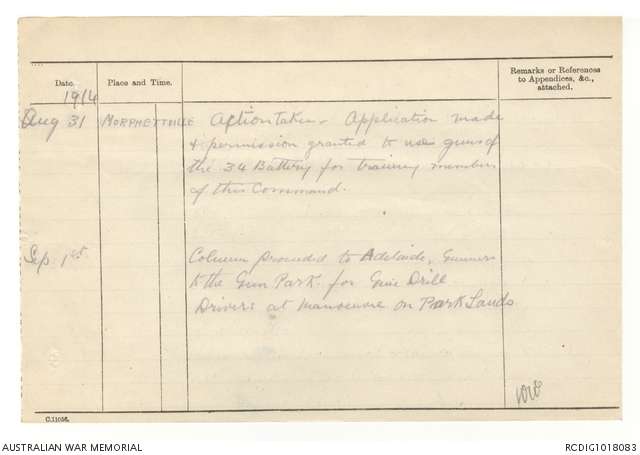 Date.
Place and Time.
Remarks or References
to Appendices, &c.,
attached.
1914
Aug 31 MORPHETTVILLE Action taken - Application made
& permission granted to use guns of
the 34 Battery for training members
of this Command.
Sep 1st Column proceeded to Adelaide, Gunners
to the Gun Park for Gun Drill
Drivers at manoeuvre on Park Lands
C.11056.
AUSTRALIAN WAR MEMORIAL
RCDIG1018083